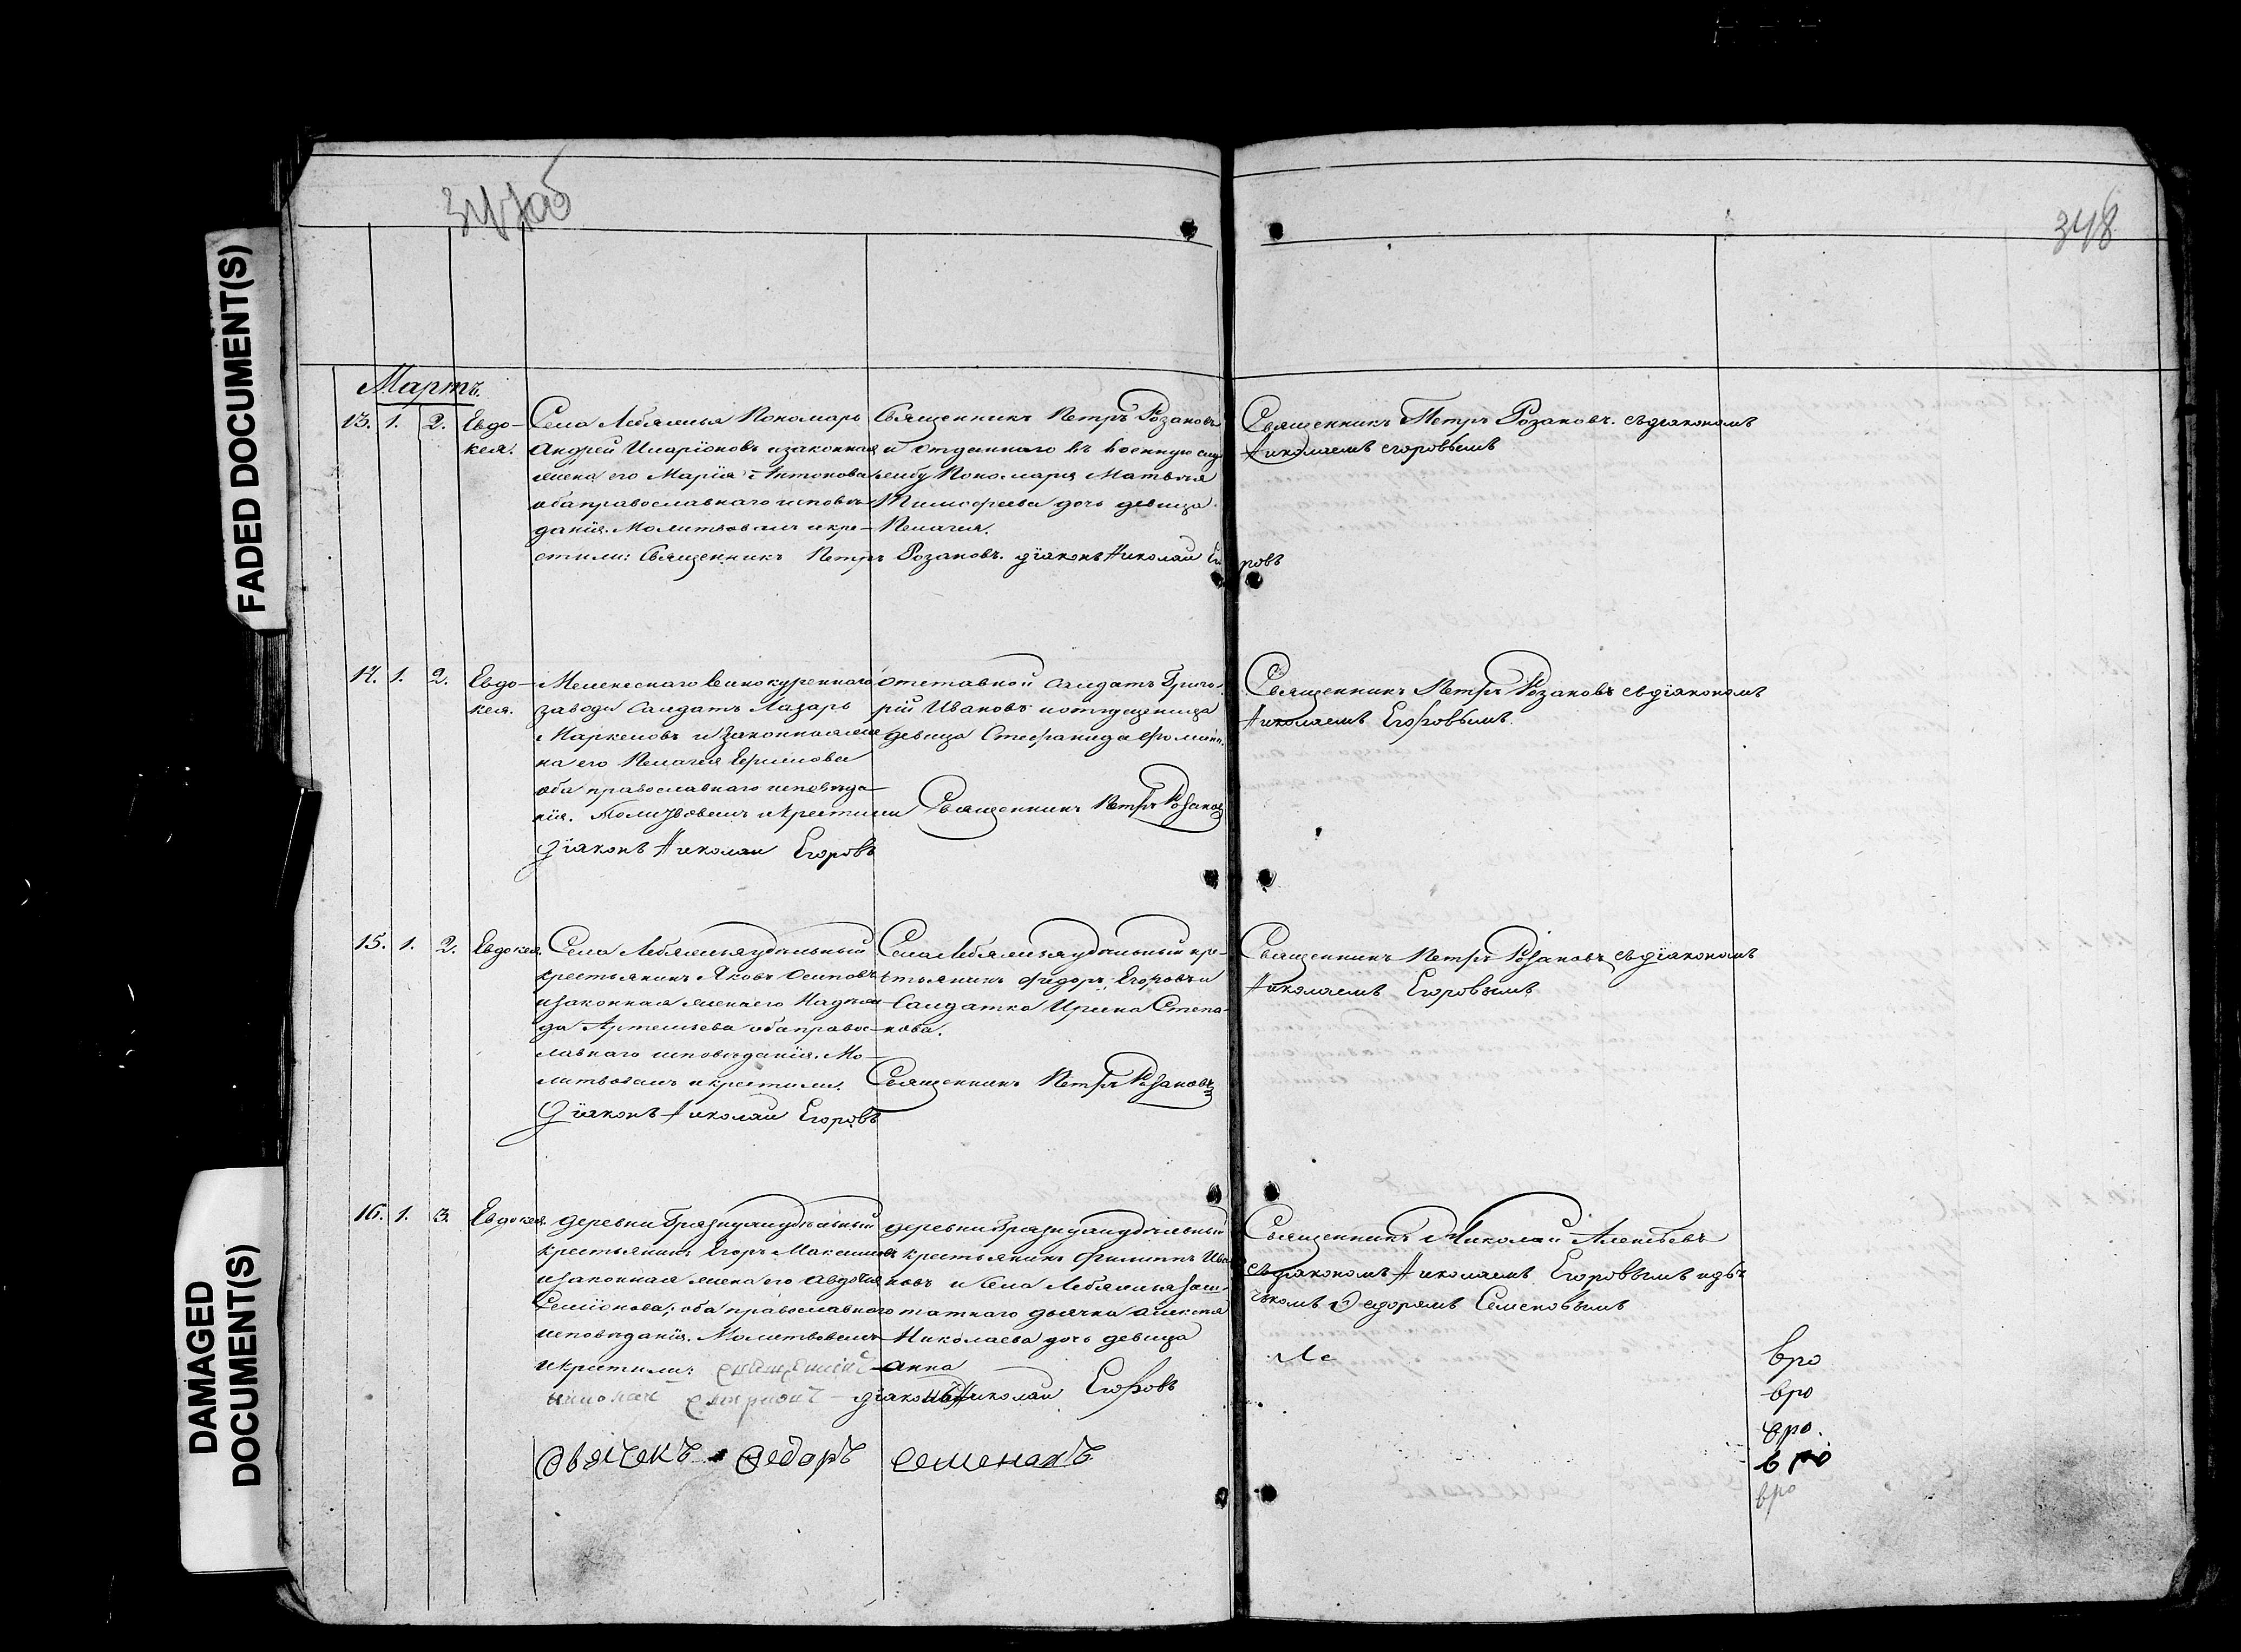 FADED DOCUMENT(S)
DAMAGED DOCUMENT(S)
347об
348
Мартъ.
13. 1. 2. Евдо-
кея.
Села Лебяжья Пономарь
Андрей Иларіоновъ изаконная
жена его Марія Антонова
обаправославнаго исповѣ-
данія. Молитвовалъ икре-
стили: Священникъ Петръ Розановъ. діаконъ Николай Егоровъ
Священникъ Петръ Розановъ
и отданнаго въ военную слу
жбу Пономаря Матвея
Тимофеева дочь девица
Пелагея.
Священникъ Петръ Розановъ. съдіакономъ
Николаемъ егоровымъ
14. 1. 2. Евдо-
кея.
Мелекескаго винокуреннаго
завода Салдатъ Лазарь
Маркеловъ и законная же
на его Пелагея Ермилова
оба православнаго исповѣда-
нія. Молитвовалъ икрестили Священникъ Петръ Розановъ
Діаконъ Николай Егоровъ
отставной Салдатъ Григо-
рій Ивановъ
девица Стефанида
Священникъ Петръ Розановъ съдіакономъ
Николаемъ Егоровымъ.
15. 1. 2. Евдокея.
Села Лебяжья удѣльный
крестьянинъ Яковъ Осиповъ
изаконная жена его Надеж
да Артемьева обаправос-
лавнаго исповѣданія. Мо-
литвовалъ икрестили. Священникъ Петръ Розановъ
Діаконъ Николай Егоровъ
Села Лебяжья удѣльный кре-
стьянинъ Федоръ Егоровъ и
Салдатка Ирина Степа-
нова.
Священникъ Петръ Розановъ съдіакономъ
Николаемъ Егоровымъ
16. 1. 3. Евдокея.
деревни Грязнухи удѣльный
крестьянинъ Егоръ Максимовъ
изаконная жена его Авдотья
Семіонова; оба православнаго
исповѣданія. Молитвовалъ
икрестили:
діаконъ Николай Егоровъ
Дьячекъ Федоръ Семеновъ
деревни Грязнухи удѣльный
крестьянинъ Филиппъ Ива
новъ и Села Лебяжья заш-
татнаго дьячка Алексея
Николаева дочь девица
Анна
Священникъ Николай
съдіакономъ Николаемъ Егоровымъ идья
чкомъ Федоромъ Семеновымъ